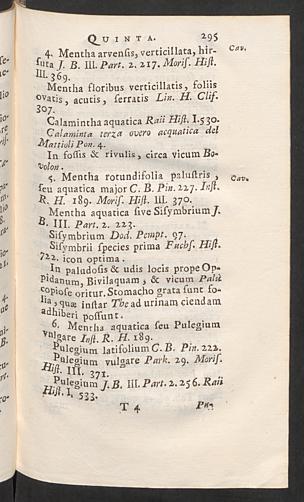 QUINTA. 295
4. Mentha arvensis, verticillata, hir- Cav.
suta J. B. III. Part. 2. 217. Moris. Hist.
III. 369.
Mentha floribus verticillatis, foliis
ovatis, acutis, serratis Lin. H. Clif.
307.
Calamintha aquatica Raii Hist. I. 530.
Calaminta terza overo acquatica del
Mattioli Pon. 4.
In fossis & rivulis, circa vicum Bo-
volon.
5. Mentha rotundifolia palustris, Cav.
seu aquatica major C. B. Pin. 227. Inst.
R. H. 189. Moris. Hist. III. 370.
Mentha aquatica sive Sisymbrium J.
B. III. Part. 2. 223.
Sisymbrium Dod. Pempt. 97.
Sisymbrii species prima Fuchs. Hist.
722. icon optima.
In paludosis & udis locis prope Op-
pidanum, Bivilaquam, & vicum Palù
copiose oritur. Stomacho grata sunt fo-
lia, quæ instar The ad urinam ciendam
adhiberi possunt.
6. Mentha aquatica seu Pulegium
vulgare Inst. R. H. 189.
Pulegium latifolium C. B. Pin. 222.
Pulegium vulgare Park. 29. Moris.
Hist. III. 371.
Pulegium J. B. III. Part. 2. 256. Raii
Hist. I. 533.
T 4 Pu-